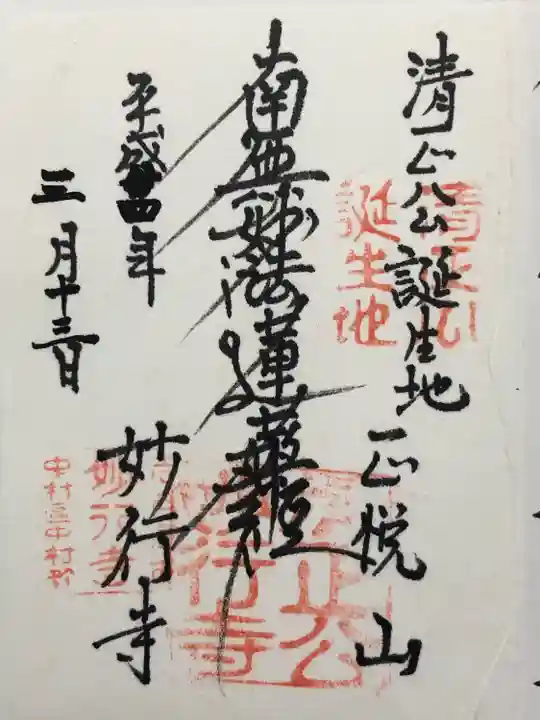 清正公誕生地
正悦山
南無妙法蓮華経
平成四年
三月十三日
妙行寺
清正公
誕生地
妙行寺
中村区中村町